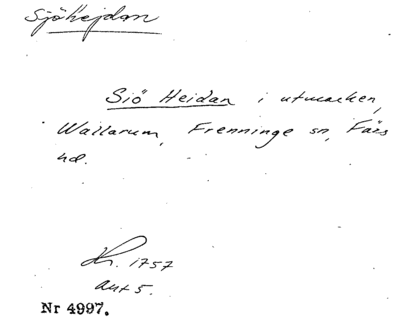 Sjöhejdan
Siö Heidan i utmarken,
Wallarum, Frenninge sn, Färs
hd.
Kr. 1757
akt 5.
Nr 4997.